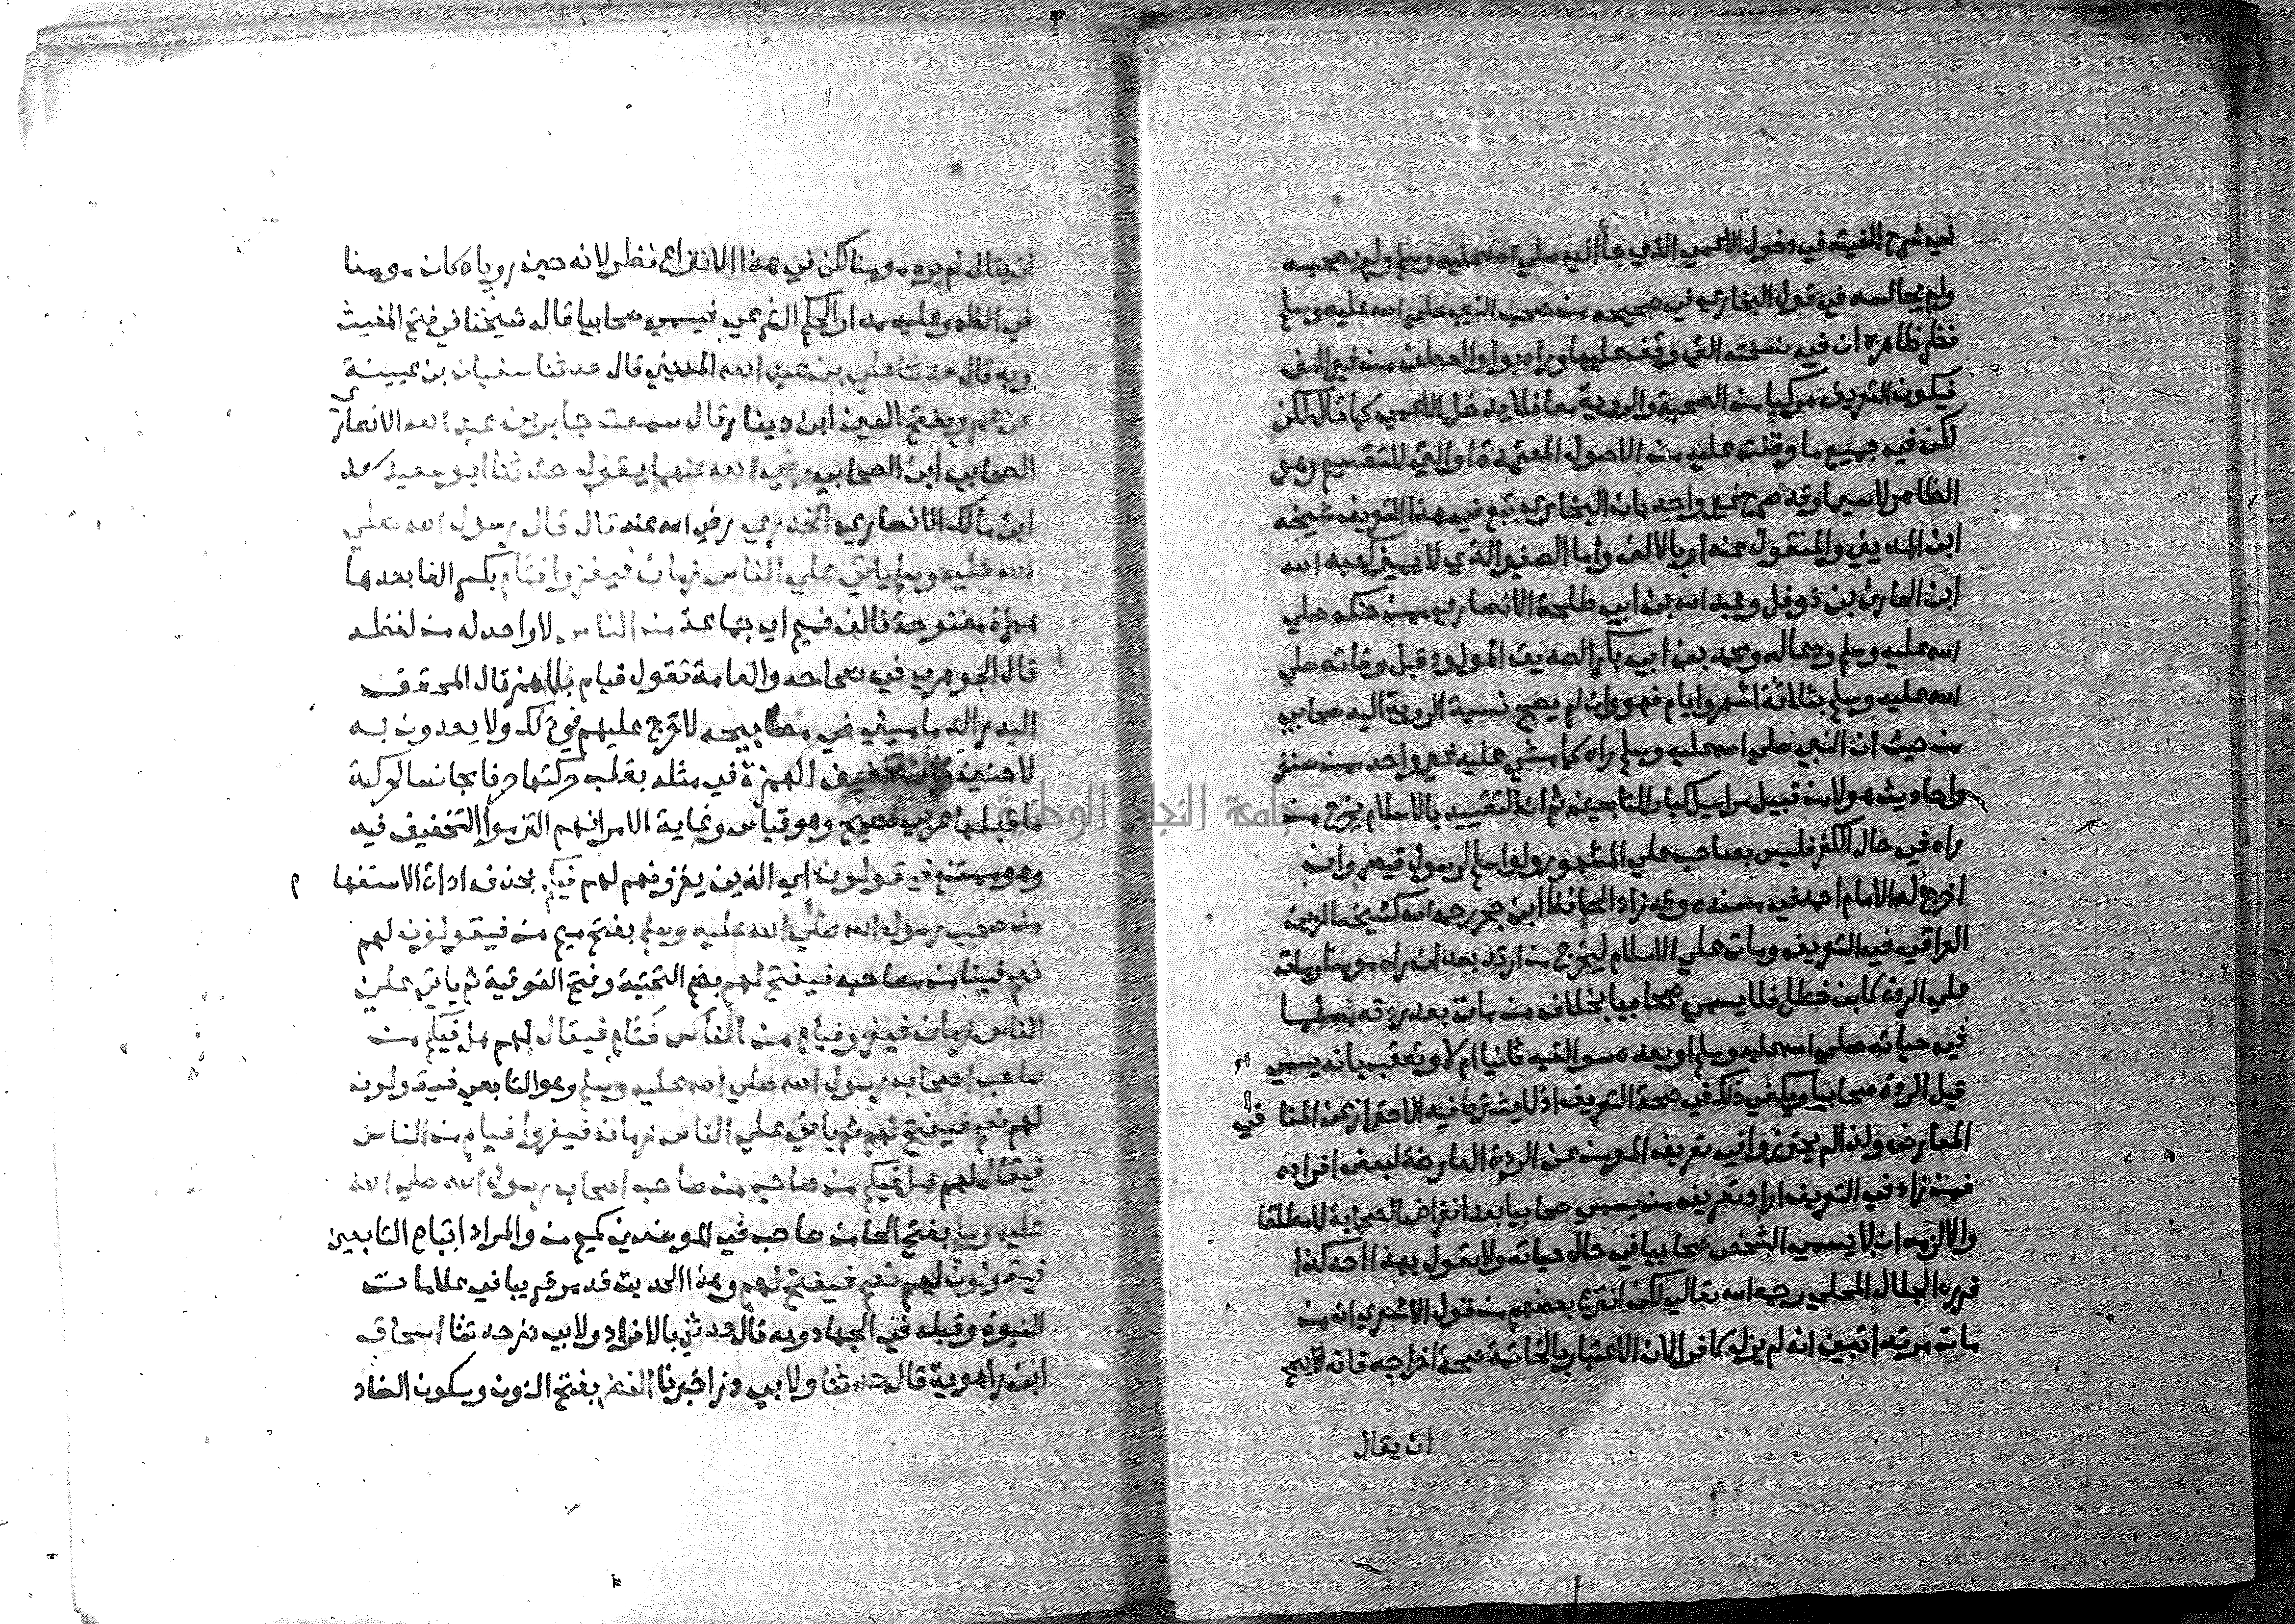 في شرح الفيته في دخول الاعمي الذي جأ اليه صلي الله عليه وسلم ولم يصحبه
ولم يجالسه في قول البخاري في صحيحه من صحب النبي صلي الله عليه وسلم
فظاهره ان في نسخته التي وقف عليها وراه بواو العطف من غير الف
فيكون التعريف مركبا من الصحبة والروية معا فلا يدخل الاعمي كما قال لكن
لكن في جميع ما وقفت عليه من الاصول المعتمدة او التي للتقسيم وهو
الظاهر لا سيما وقد صرح غير واحد بان البخاري تبع في هذا التعريف شيخه
ابن المديني والمنقول عنه او بالالف واما الصغير الذي لا يميز كعبد الله
ابن الحارث بن نوفل وعبد الله بن ابي طلحة الانصاري ممن حنكه صلي
الله عليه وسلم ودعا له ومحمد بن ابي بكر الصديق المولود قبل وفاته صلي
الله عليه وسلم بثلاثة اشهر وايام فهو وان لم يصح نسبة الروية اليه صحابي
من حيث ان النبي صلي الله عليه وسلم راه كما مشي عليه غير واحد ممن صنف
واحاديث هولا من قبيل مراسيل كبار التابعين ثم ان التقييد بالاسلام يخرج من
راه في حال الكفر فليس بصاحب علي المشهور ولو اسلم كرسول قيصر وان
اخرج له الامام احمد في مسنده وقد زاد الحافظ ابن حجر رحمه الله كشيخه الزين
العراقي في التعريف ومات علي الاسلام ليخرج من ارتد بعد ان راه مومنا ومات
علي الردة كابن خطل فلا يسمي صحابيا بخلاف من مات بعد ردته مسلما
في حياته صلي الله عليه وسلم او بعده سوا لقيه ثانيا ام لا وتعقب بانه يسمي
قبل الردة صحابيا ويكفي ذلك في صحة التعريف اذ لا يشترط فيه الاحتراز عن المنا في
المعارض ولذا لم يحترزوا في تعريف المومن عن الردة العارضة لبعض افراده
فمن زاد في التعريف اراد تعريف من يسمي صحابيا بعد انقراض الصحابة لا مطلقا
والا لزمه ان لا يسمي الشخص صحابيا في حال حياته ولا يقول بهذا احد كذا
قرره الجلال المحلي رحمه الله تعالي لكن انتزع بعضهم من قول الاشعري ان من
مات مرتدا تبين انه لم يزل كافرا لان الاعتبار بالخاتمة صحة اخراجه فانه يصح
ان يقال
ان يقال لم يره مومنا لكن في هذا الانتزاع نظر لانه حين روياه كان مومنا
في الظاهر وعليه مدار الحكم الشرعي فيسمي صحابيا قاله شيخنا في فتح المغيث
وبه قال حدثنا علي بن عبد الله المديني قال حدثنا سفيان بن عيينة
عن عمرو بفتح العين ابن دينار قال سمعت جابر بن عبد الله الانصاري
الصحابي ابن الصحابي رضي الله عنهما يقول حدثنا ابو سعيد سعد
ابن مالك الانصاري الخدري رضي الله عنه قال قال رسول الله صلي
الله عليه وسلم ياتي علي الناس زمان فيغزوا فئام بكسر الفا بعدها
همزة مفتوحة فالف فميم اي جماعة من الناس لا واحد له من لفظه
قال الجوهري في صحاحه والعامة تقول فيام بلا همز قال المحقق
البدر الدماميني في مصابيحه لا حرج عليهم في ذلك ولا يعدون به
لاحنين تخفيف الهمزة في مثله بقلب حركتها حرفا مجانسا لحركة
ما قبلها عربي فصيح وهو قياس وغاية الامر انهم التزموا التخفيف فيه
وهو ممتنع فيقولون اي الذين يغزونهم لهم فيكم بحذف اداة الاستفها م
من صحب رسول الله صلي الله عليه وسلم بفتح ميم من فيقولون لهم
نعم فينا من صاحبه فيفتح لهم بضم التحتية وفتح الفوقية ثم ياتي علي
الناس زمان فيغزو فيام من الناس فئام فيقال لهم هل فيكم من
صاحب اصحاب رسول الله صلي الله عليه وسلم وهو التابعي فيقولون
لهم نعم فيفتح لهم ثم ياتي علي الناس زمان فيغزوا فيام من الناس
فيقال لهم هل فيكم من صاحب من صاحب اصحاب رسول الله صلي الله
عليه وسلم بفتح الحا من صاحب في الموضعين كميم من والمراد اتباع التابعين
فيقولون لهم نعم فيفتح لهم وهذا الحديث قد مر قريبا في علامات
النبوة وقبله في الجهاد وبه قال حدثني بالافراد ولابي ذر حدثنا اسحاق
ابن راهوية قال حدثنا ولابي ذر اخبرنا النضر بفتح النون وسكون الضاد
جامعة النجاح الوطنية